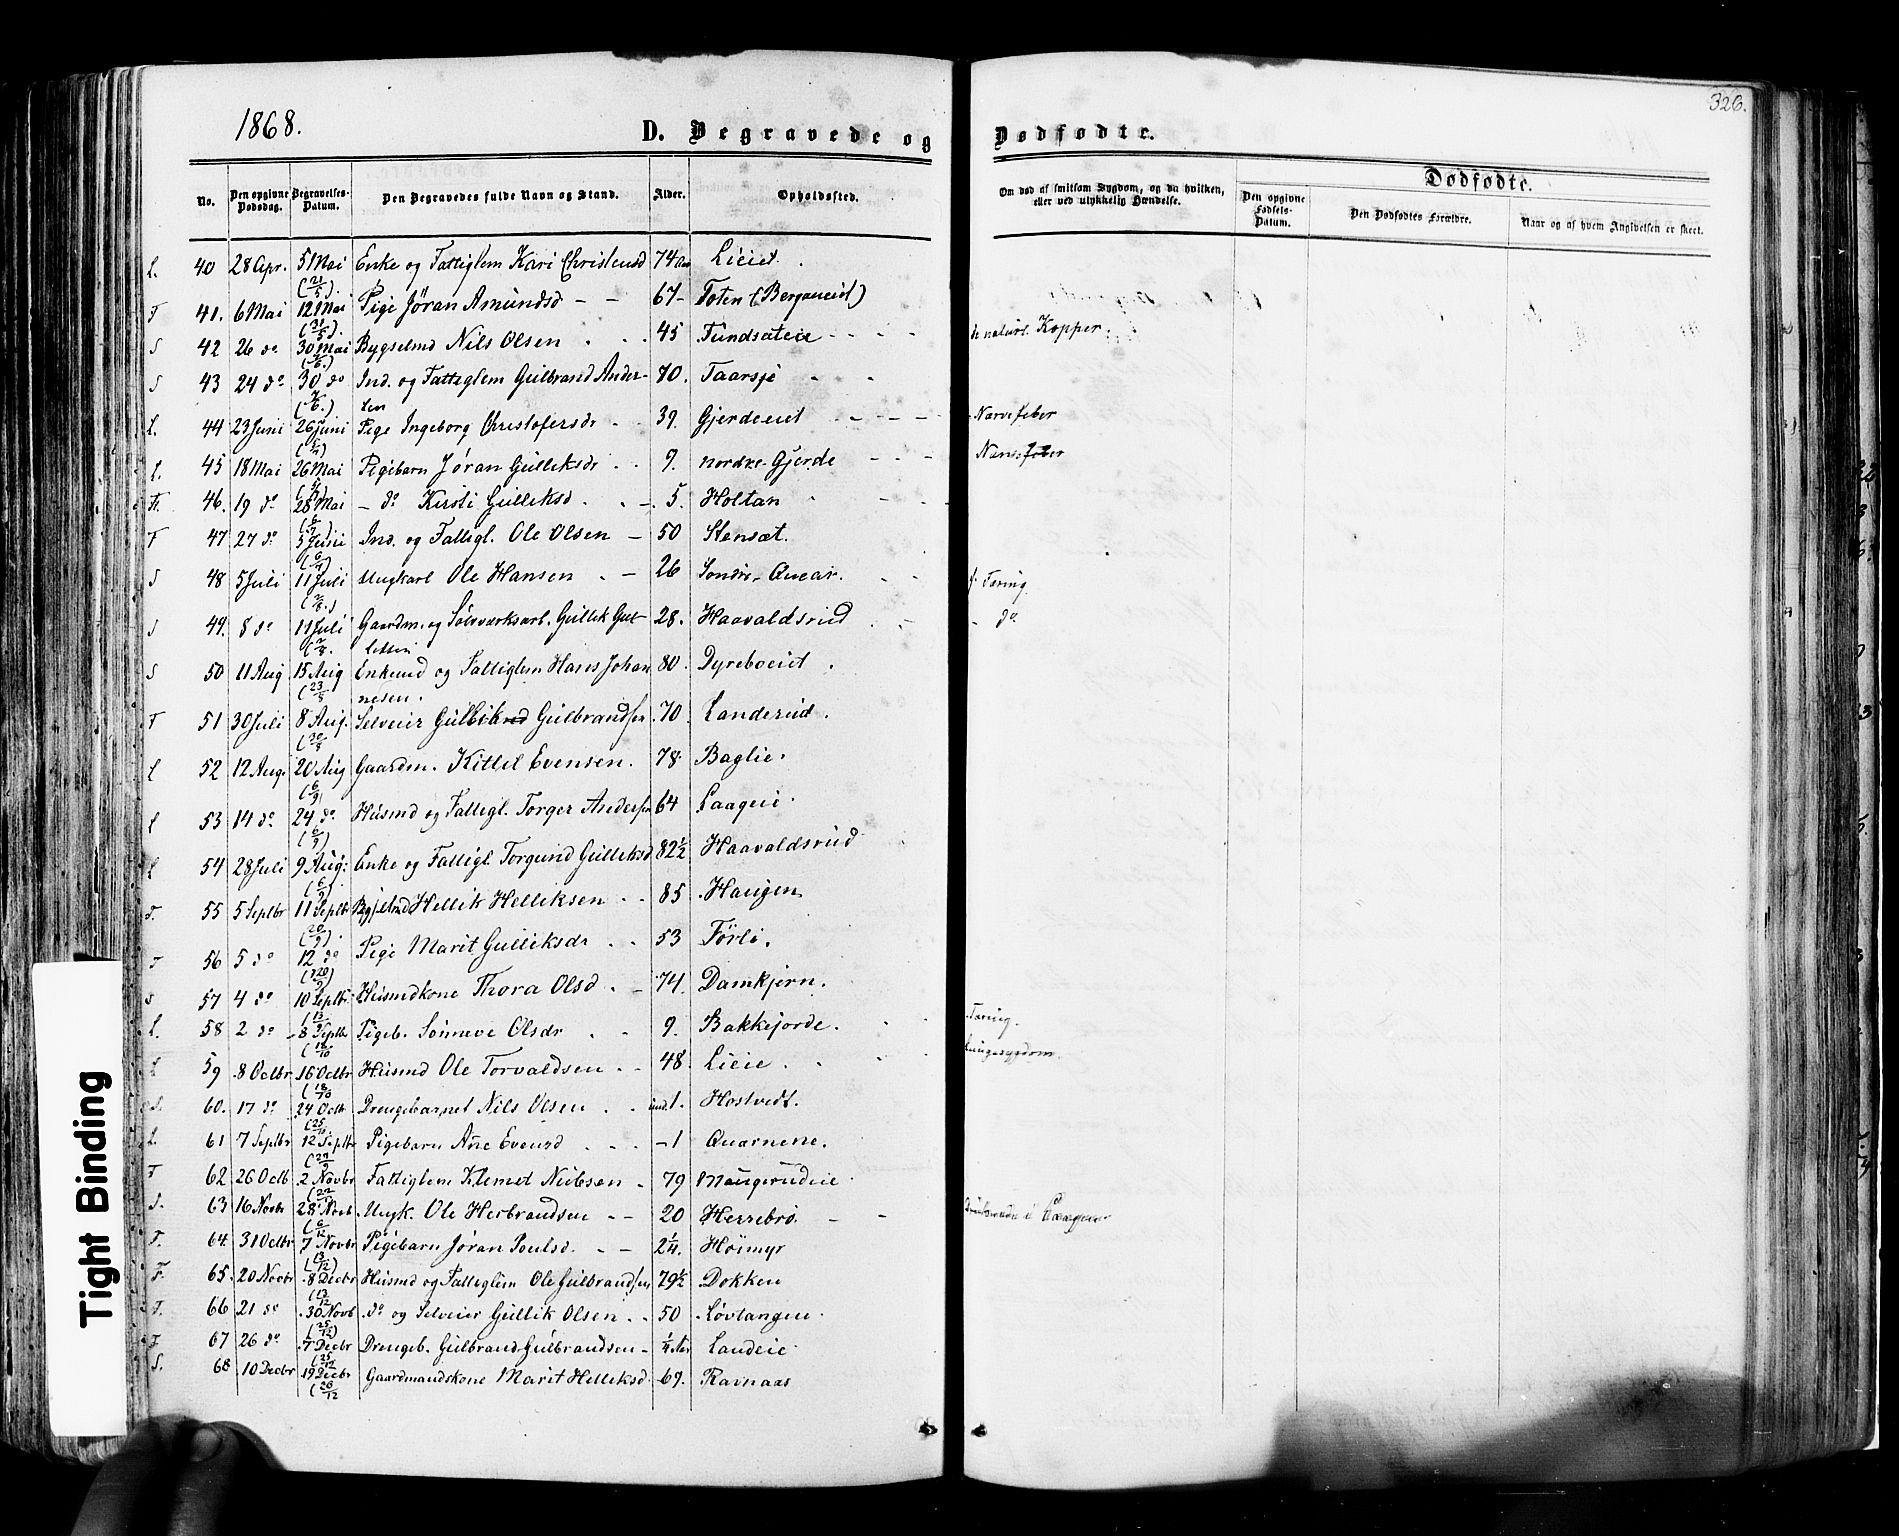 1868.
D. Begravede og
Dødfødte.
326.
No.
Den opgivne Dødsdag.
Begravelses-Datum.
Den Begravedes fulde Navn og Stand.
Alder.
Opholdssted.
Om død af smitsom Sygdom, og da hvilken, eller ved ulykkelig Hændelse.
Dødfødte.
Den opgivne Fødsels-Datum.
Den Dødfødtes Forældre.
Naar og af hvem Angivelsen er skeet.
L. 40 28 Apr. 5 Mai Enke og Fattiglem Kari Christensd 74 Aar Lieiet.
(21/5).
T 41. 6 Mai 12 Mai Pige Jöran Amundsd - - 67- Toten (Berganeiet)
(31/5).
S 42 26 do 30 Mai Bygselmd Nils Olsen 45 Tundsateie de naturl. Kopper.
S 43 24 do 30 do Ind. og Fattiglem Gulbrand Ander- 70. Taarsje
sen
L. 44 23 Juni 26 Juni Pige Ingeborg Christofersdr 39. Gjerdeeiet - Nervefeber
L. 45 18 Mai 26 Mai Pigebarn Jøran Gulliksdr 9. nordre Gjerde Nervefeber
Fr. 46. 19 do 28 Mai - do Kirsti Gulliksd 5. Holtan
T 47 27 do 5 Juni Ind. og Fattigl. Ole Olsen - 50 Stensæt.
S 48 5 Juli 11 Juli Ungkarl Ole Hansen 26 Søndre Quear. Tæring
(2/8.)
S 49. 8 do 11 Juli Gaardm. og Sølvværksarb. Gullik Gul- 28. Haavaldsrud - do
(2/8. leksen
S 50 11 Aug 15 Aug Enkemd og Fattiglem Hans Johan 80. Dyreboeiet
(23/8 nesen.
T 51 30 Juli 8 Aug. Selveier Gullik Gulbrandsen 70. Landerud.
(30/8
L 52 12 Aug. 20 Aug Gaardm. Kittil Evensen. 78. Baglie.
(6/9)
L 53 14 do 24 do Husmd og Fattigl. Torger Andersen 64 Laageie
(6/9)
L 54 28 Juli 9 Aug: Enke og Fattigl. Torgund Gulliksd 82½ Haavaldsrud
(6/9)
T. 55 5 Septbr 11 Septbr Bygselmd Hellik Helliksen 85 Haugen
(20/9).
T 56 5 do 12 do Pige Marit Gulliksdr 53 Førli.
(20/9)
S 57 4 do 10 Septbr Husmdkone Thora Olsd 74. Damkjern.
(13/9
L. 58 2 do 8 Septbr Pigeb. Sønneve Olsdr 9. Bakkejorde. Tæring.
(18/10
L 59 8 Octbr 16 Octbr Husmd Ole Torvaldsen 48 Lieie. Lungesygdom.
(18/10
S. 60. 17 do 24 Octb Drengebarnet Nils Olsen und. 1. Hostvedt.
(25/10
L. 61 7 Septbr 12 Septbr Pigebarn Ane Evensd - 1 Quarnene.
(27/9
T 62 26 Octb 2 Novbr Fattiglem Klemet Nubsen - 79 Maugerudeie
S. 63 16 Novbr 28 Novb Ungk. Ole Herbrandsen - - 20 Herrebrö
(6/12
T. 64. 31 Octbr 7 Novbr Pigebarn Jøran Poulsd. - - 2¼. Höimyr
(13/12)
F. 65. 20 Novbr 8 Decbr Husmd og Fattiglem Ole Gulbrandsen 79½ Dokken
(13/12
T. 66 21 do 30 Novb do og Selveier Gullik Olsen 50 Løvtangen
(25/12)
F. 67 26 do 7 Decbr Drengeb. Gulbrand Gulbrandsen - ¼ Aar Landeie
(25/12
S. 68 10 Decbr 19 Decbr Gaardmandskone Marit Helliksd 69. Ravnaas
(26/12
Tight Binding